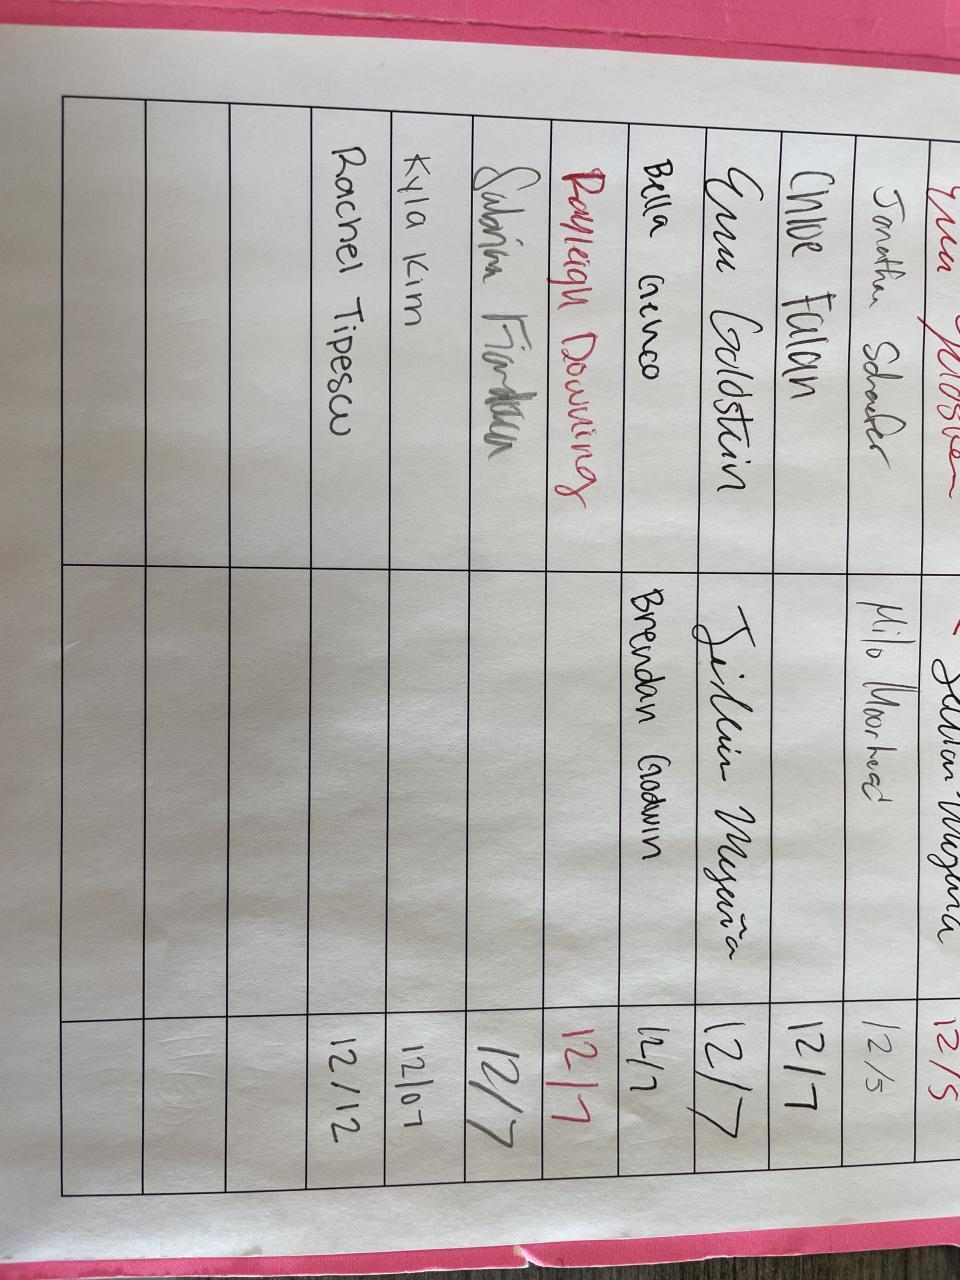 Goldstein Jillian Mezaña 12/5
Jonathan Schaefer Milo Moorhead 12/5
Chloe Falan 12/7
Goldstein Jillian Mezaña 12/7
Bella Genco Brendan Godwin 12/7
Rayleigh Downing 12/7
Sabrina 12/7
Kyla Kim 12/07
Rachel Tipescu 12/12